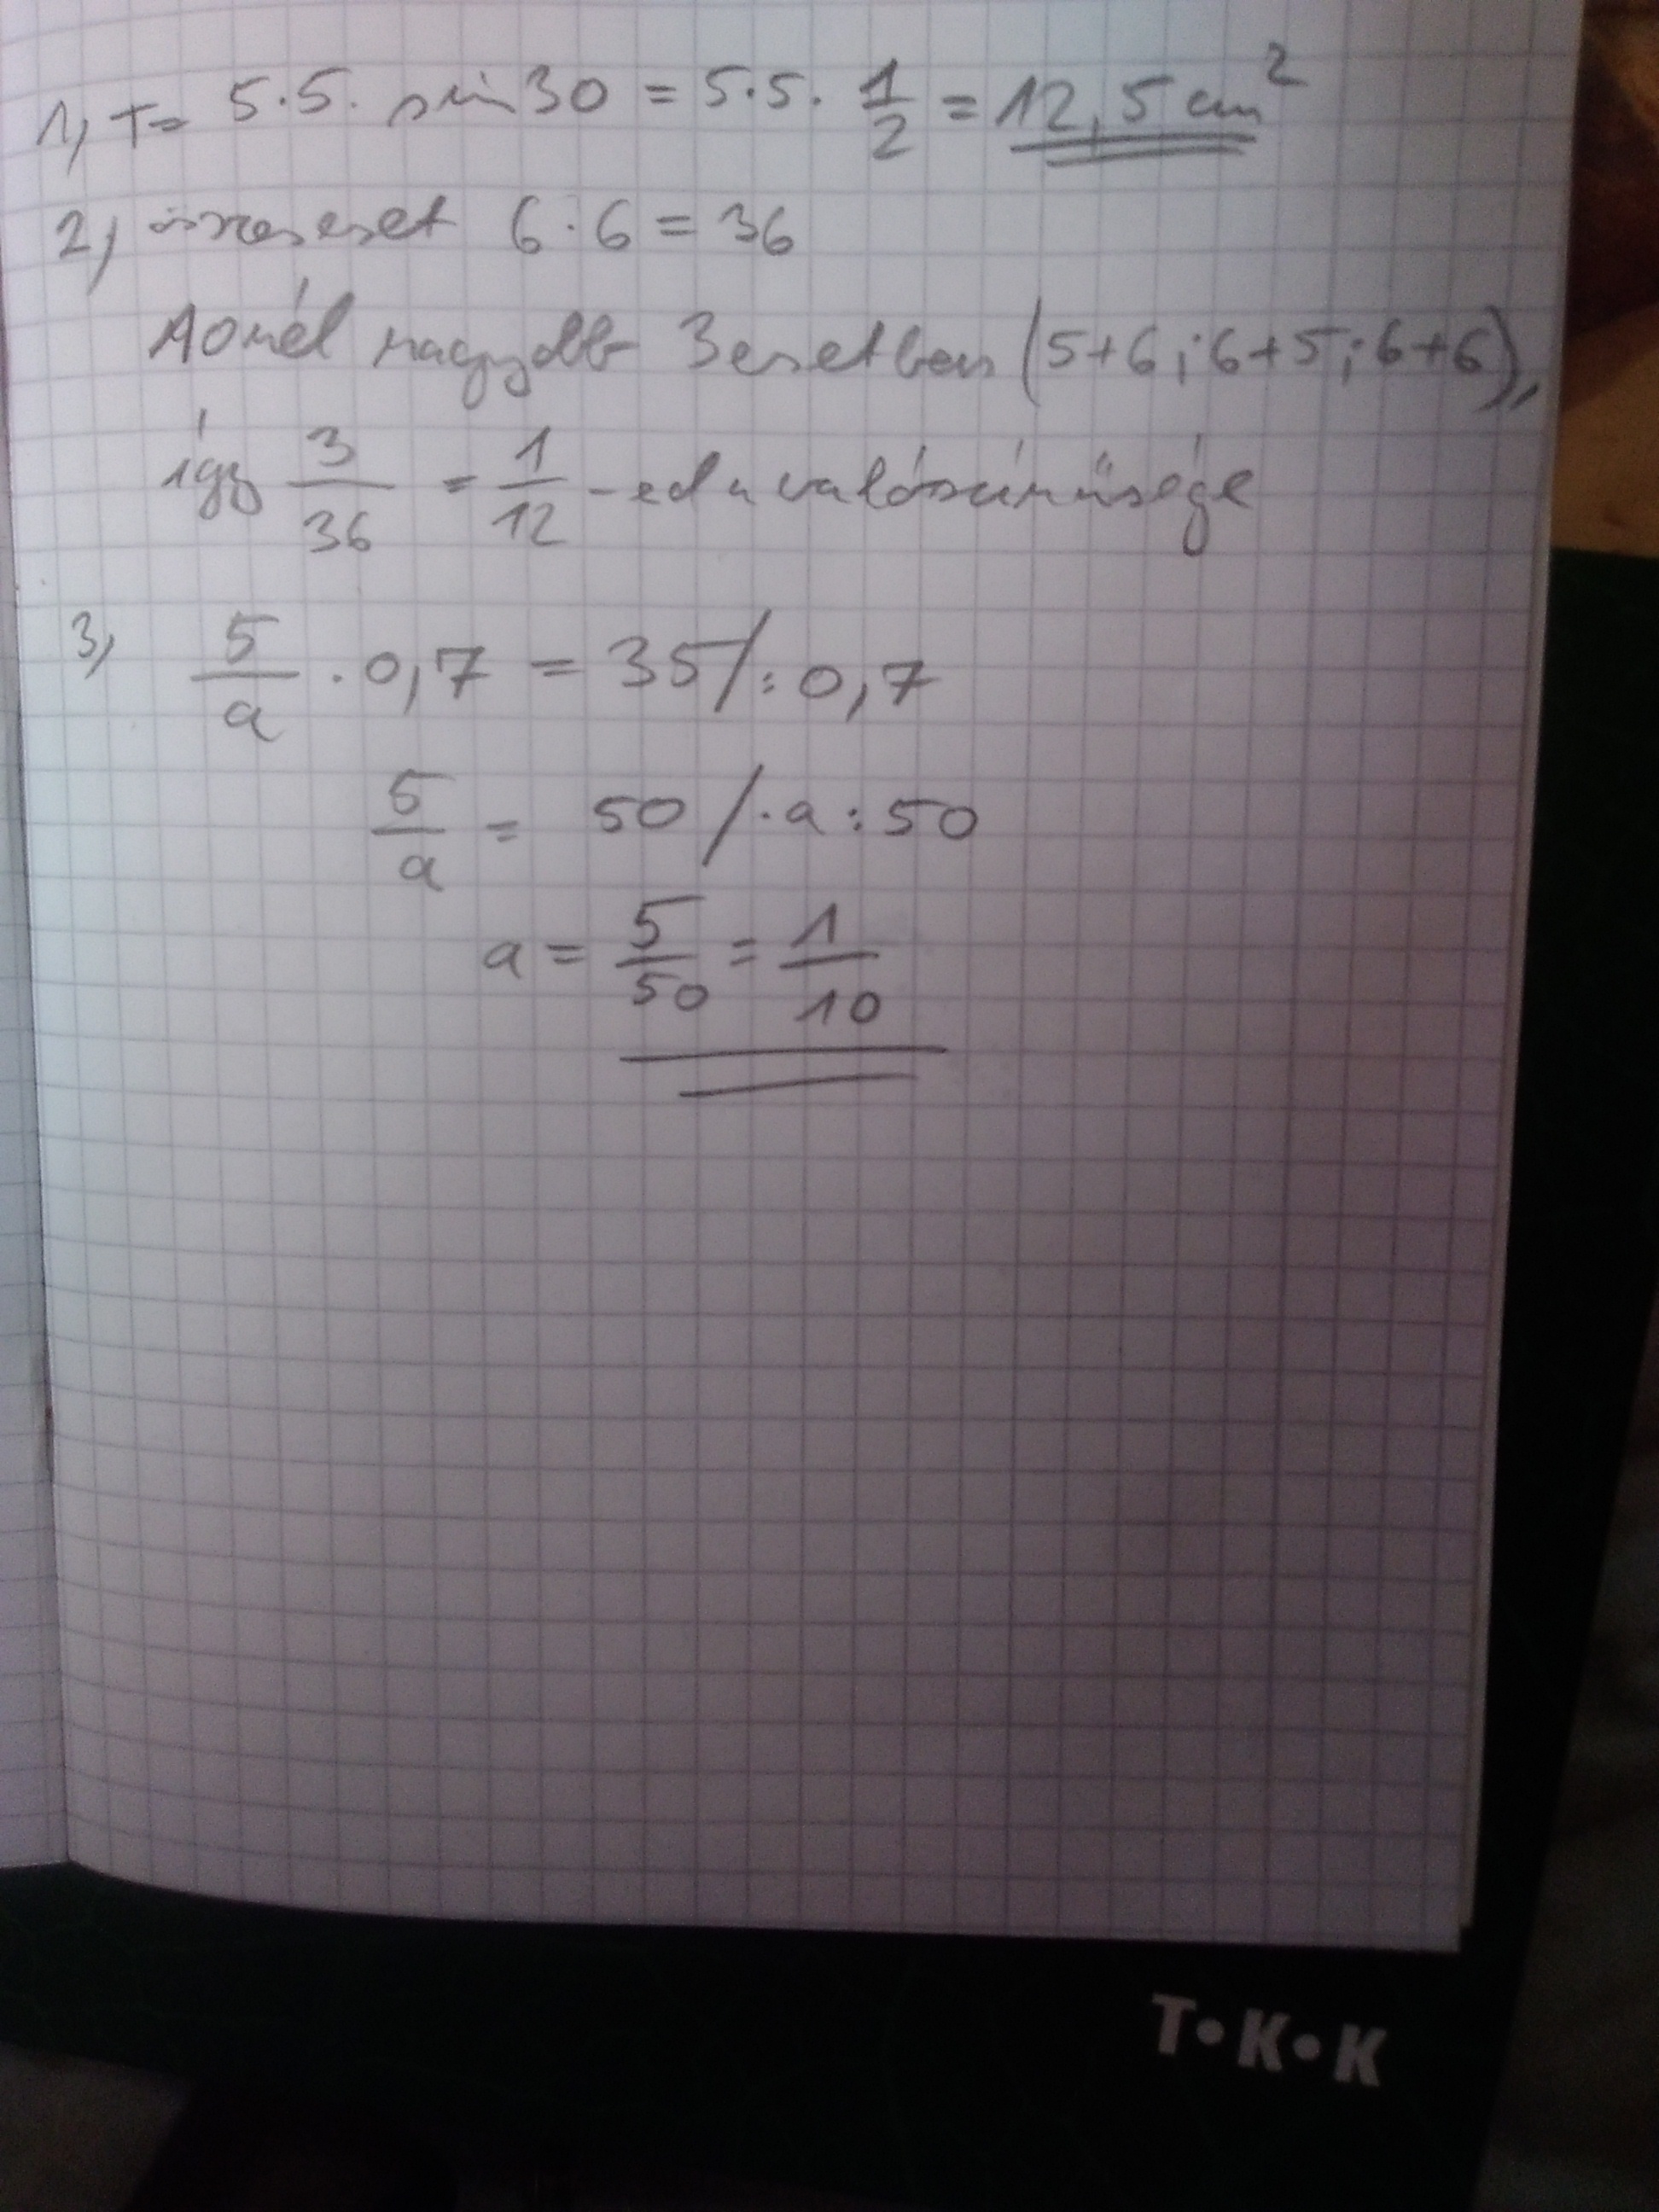 1, T= 5·5· sin 30 = 5·5· 1/2 = 12,5 cm²
2, összeset 6·6 = 36
10nél nagyobb 3 esetben (5+6; 6+5; 6+6),
így 3/36 = 1/12 -ed a valószínűsége
3, 5/a · 0,7 = 35 /:0,7
5/a = 50 /·a :50
a = 5/50 = 1/10
T•K•K